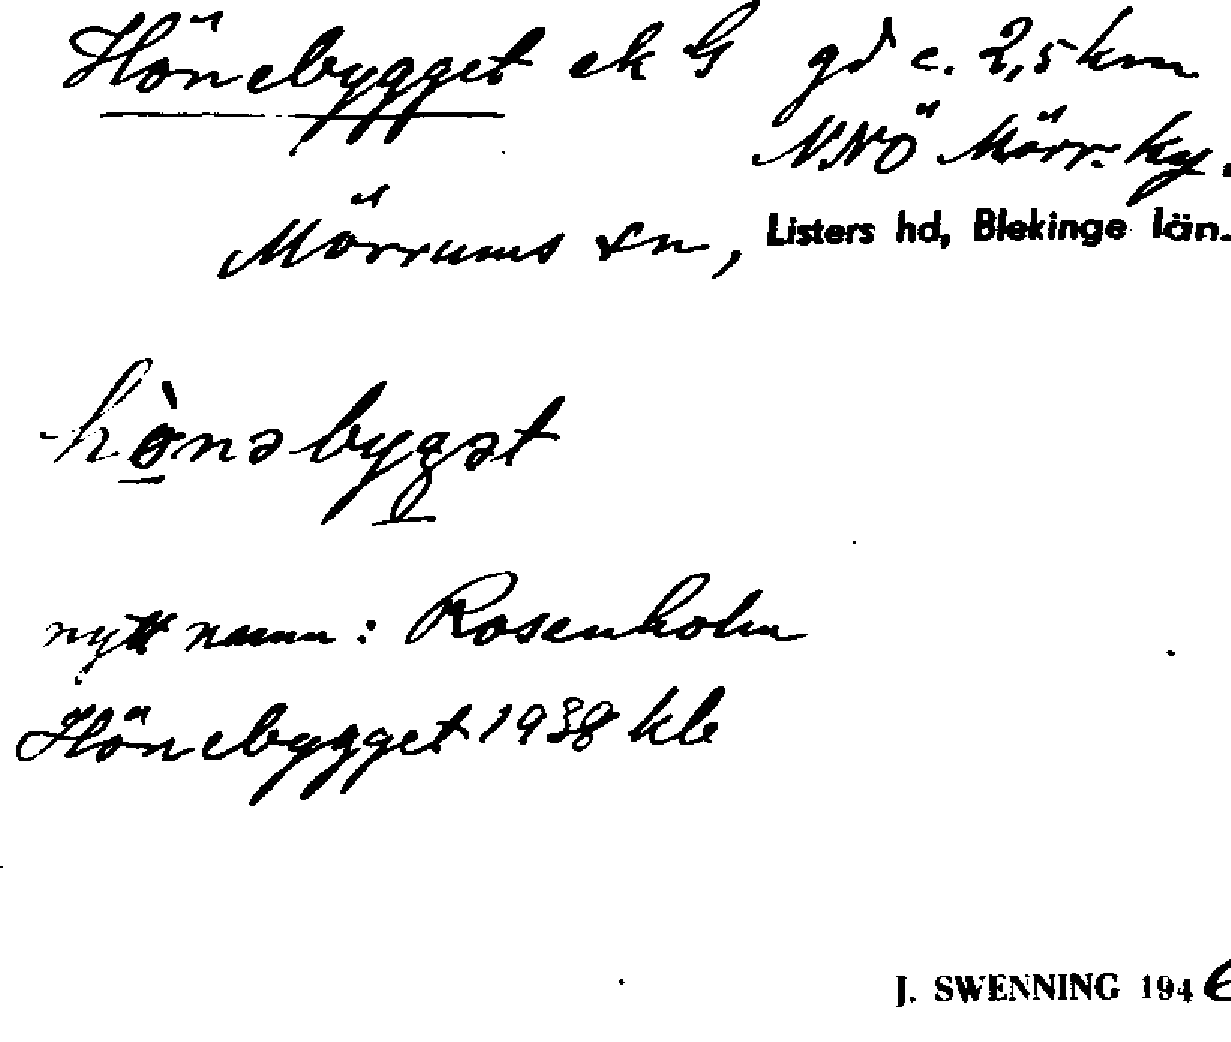 Hönebygget ek G gd c. 2,5 km
NNÖ Mörr. ky.
Mörrums sn, Listers hd, Blekinge län.
hònəbygət
nytt namn: Rosenholm
Hönebygget 1938 kb
J. SWENNING 1946